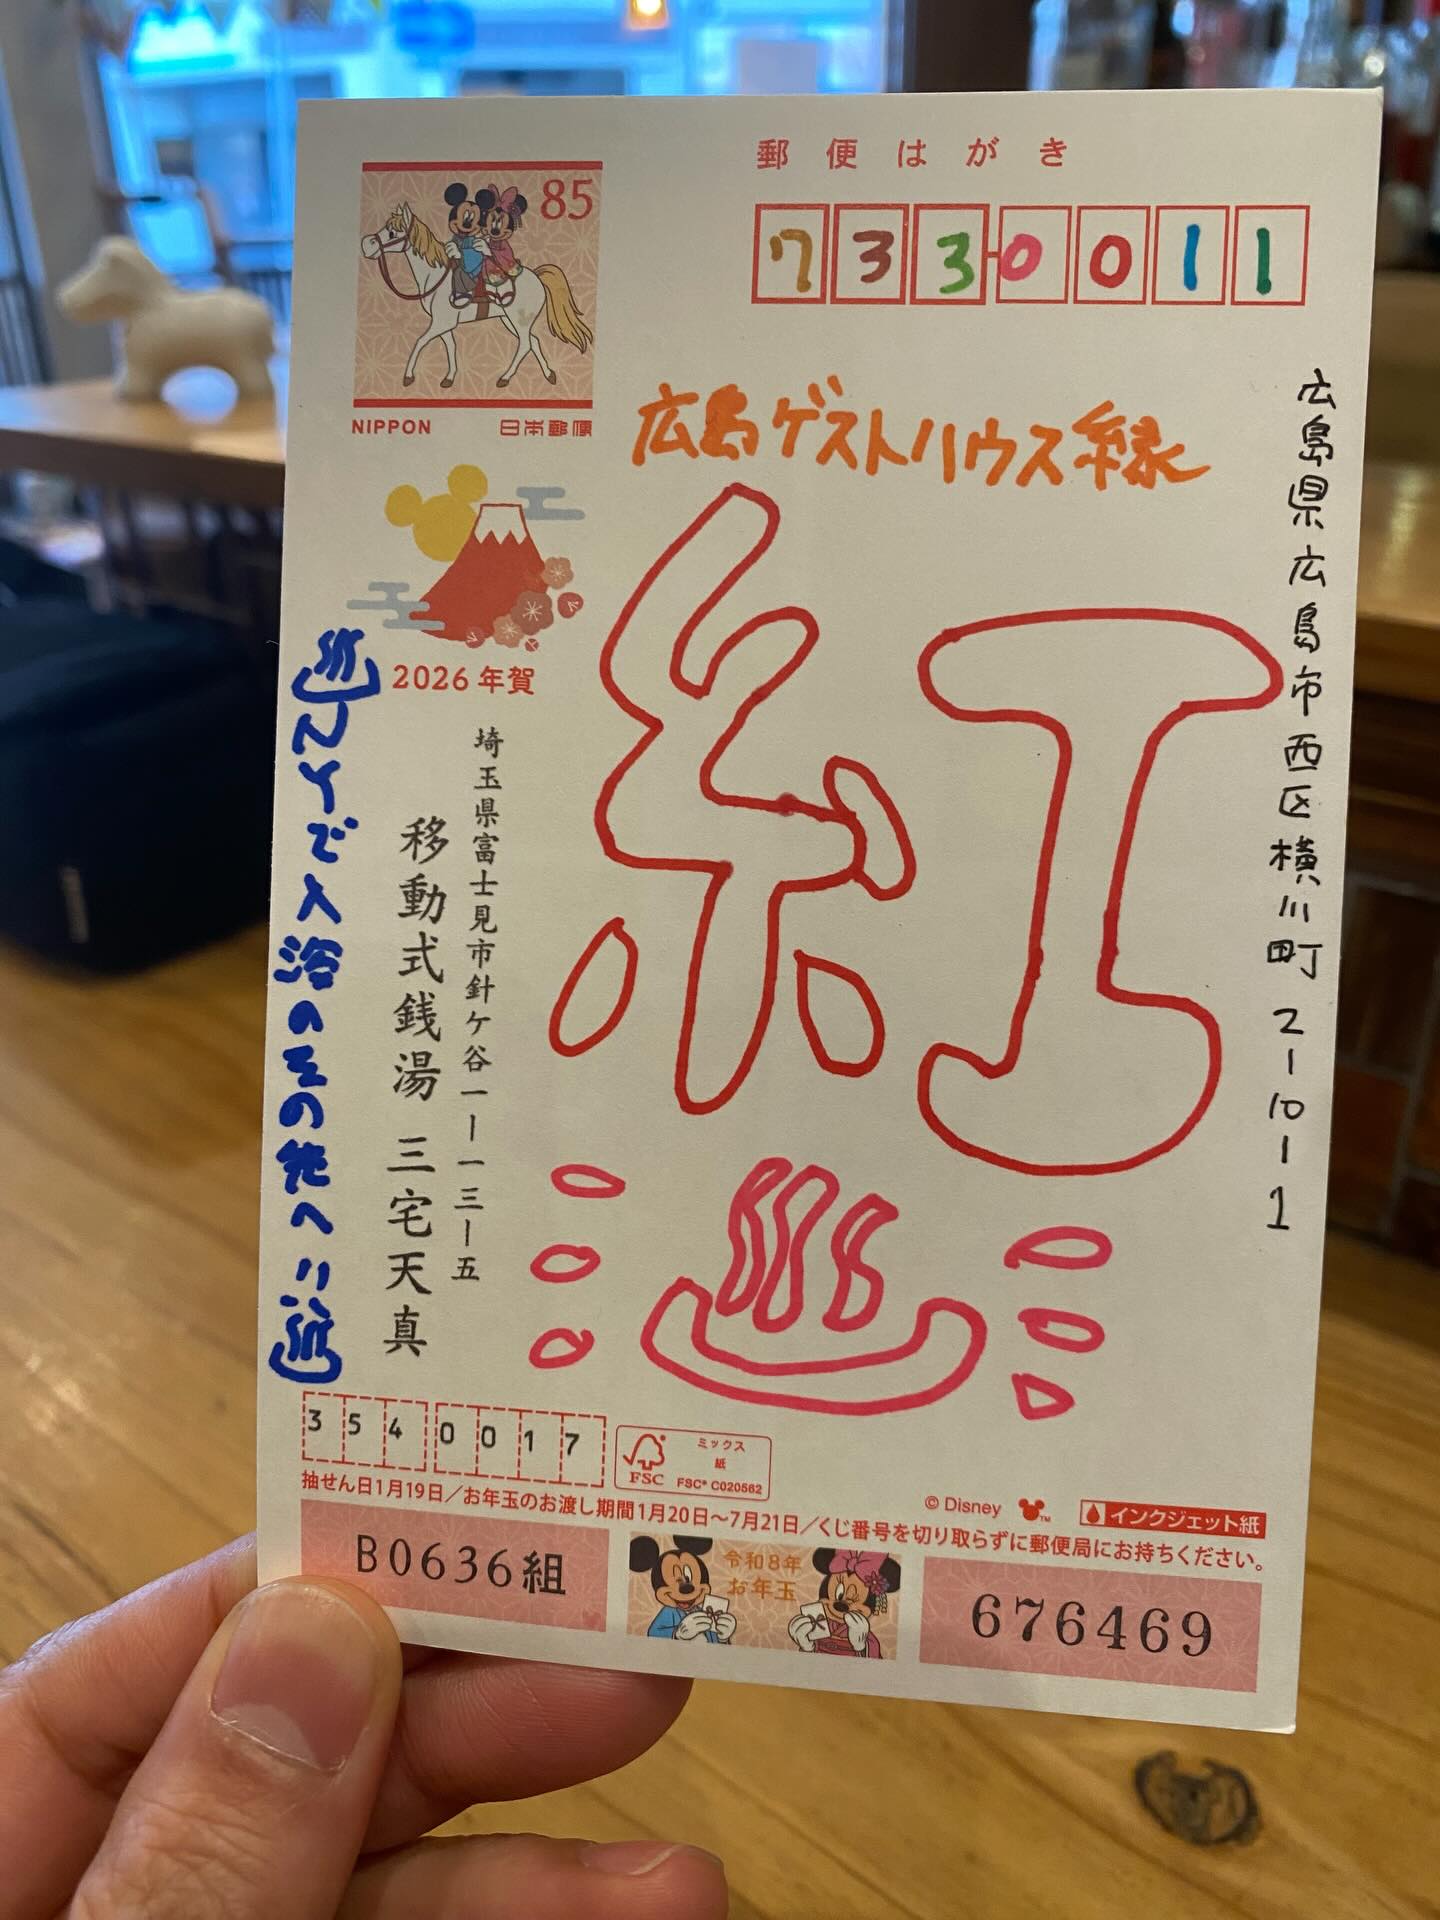 郵便はがき
85
NIPPON 日本郵便
7330011
広島県広島市西区横川町2-10-1
広島ゲストハウス縁
紅
2026年賀
埼玉県富士見市針ケ谷一ー一三ー五
移動式銭湯 三宅天真
で入浴のその先へ!!
3540017
FSC
ミックス
紙
FSC® C020562
© Disney
インクジェット紙
抽せん日1月19日/お年玉のお渡し期間1月20日〜7月21日/くじ番号を切り取らずに郵便局にお持ちください。
B0636組
令和8年
お年玉
676469